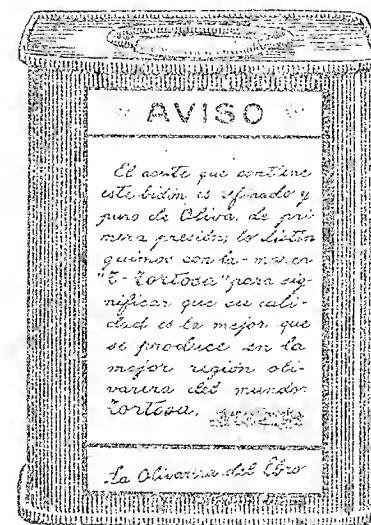 AVISO
El aceite que contiene
este bidón es refinado y
puro de Oliva, de pri
mera presión, lo distin
guimos con la - marca
"E - Tortosa" para sig-
nificar que su cali-
dad es la mejor que
se produce en la
mejor región oli-
varera del mundo:
Tortosa.
La Olivarera del Ebro